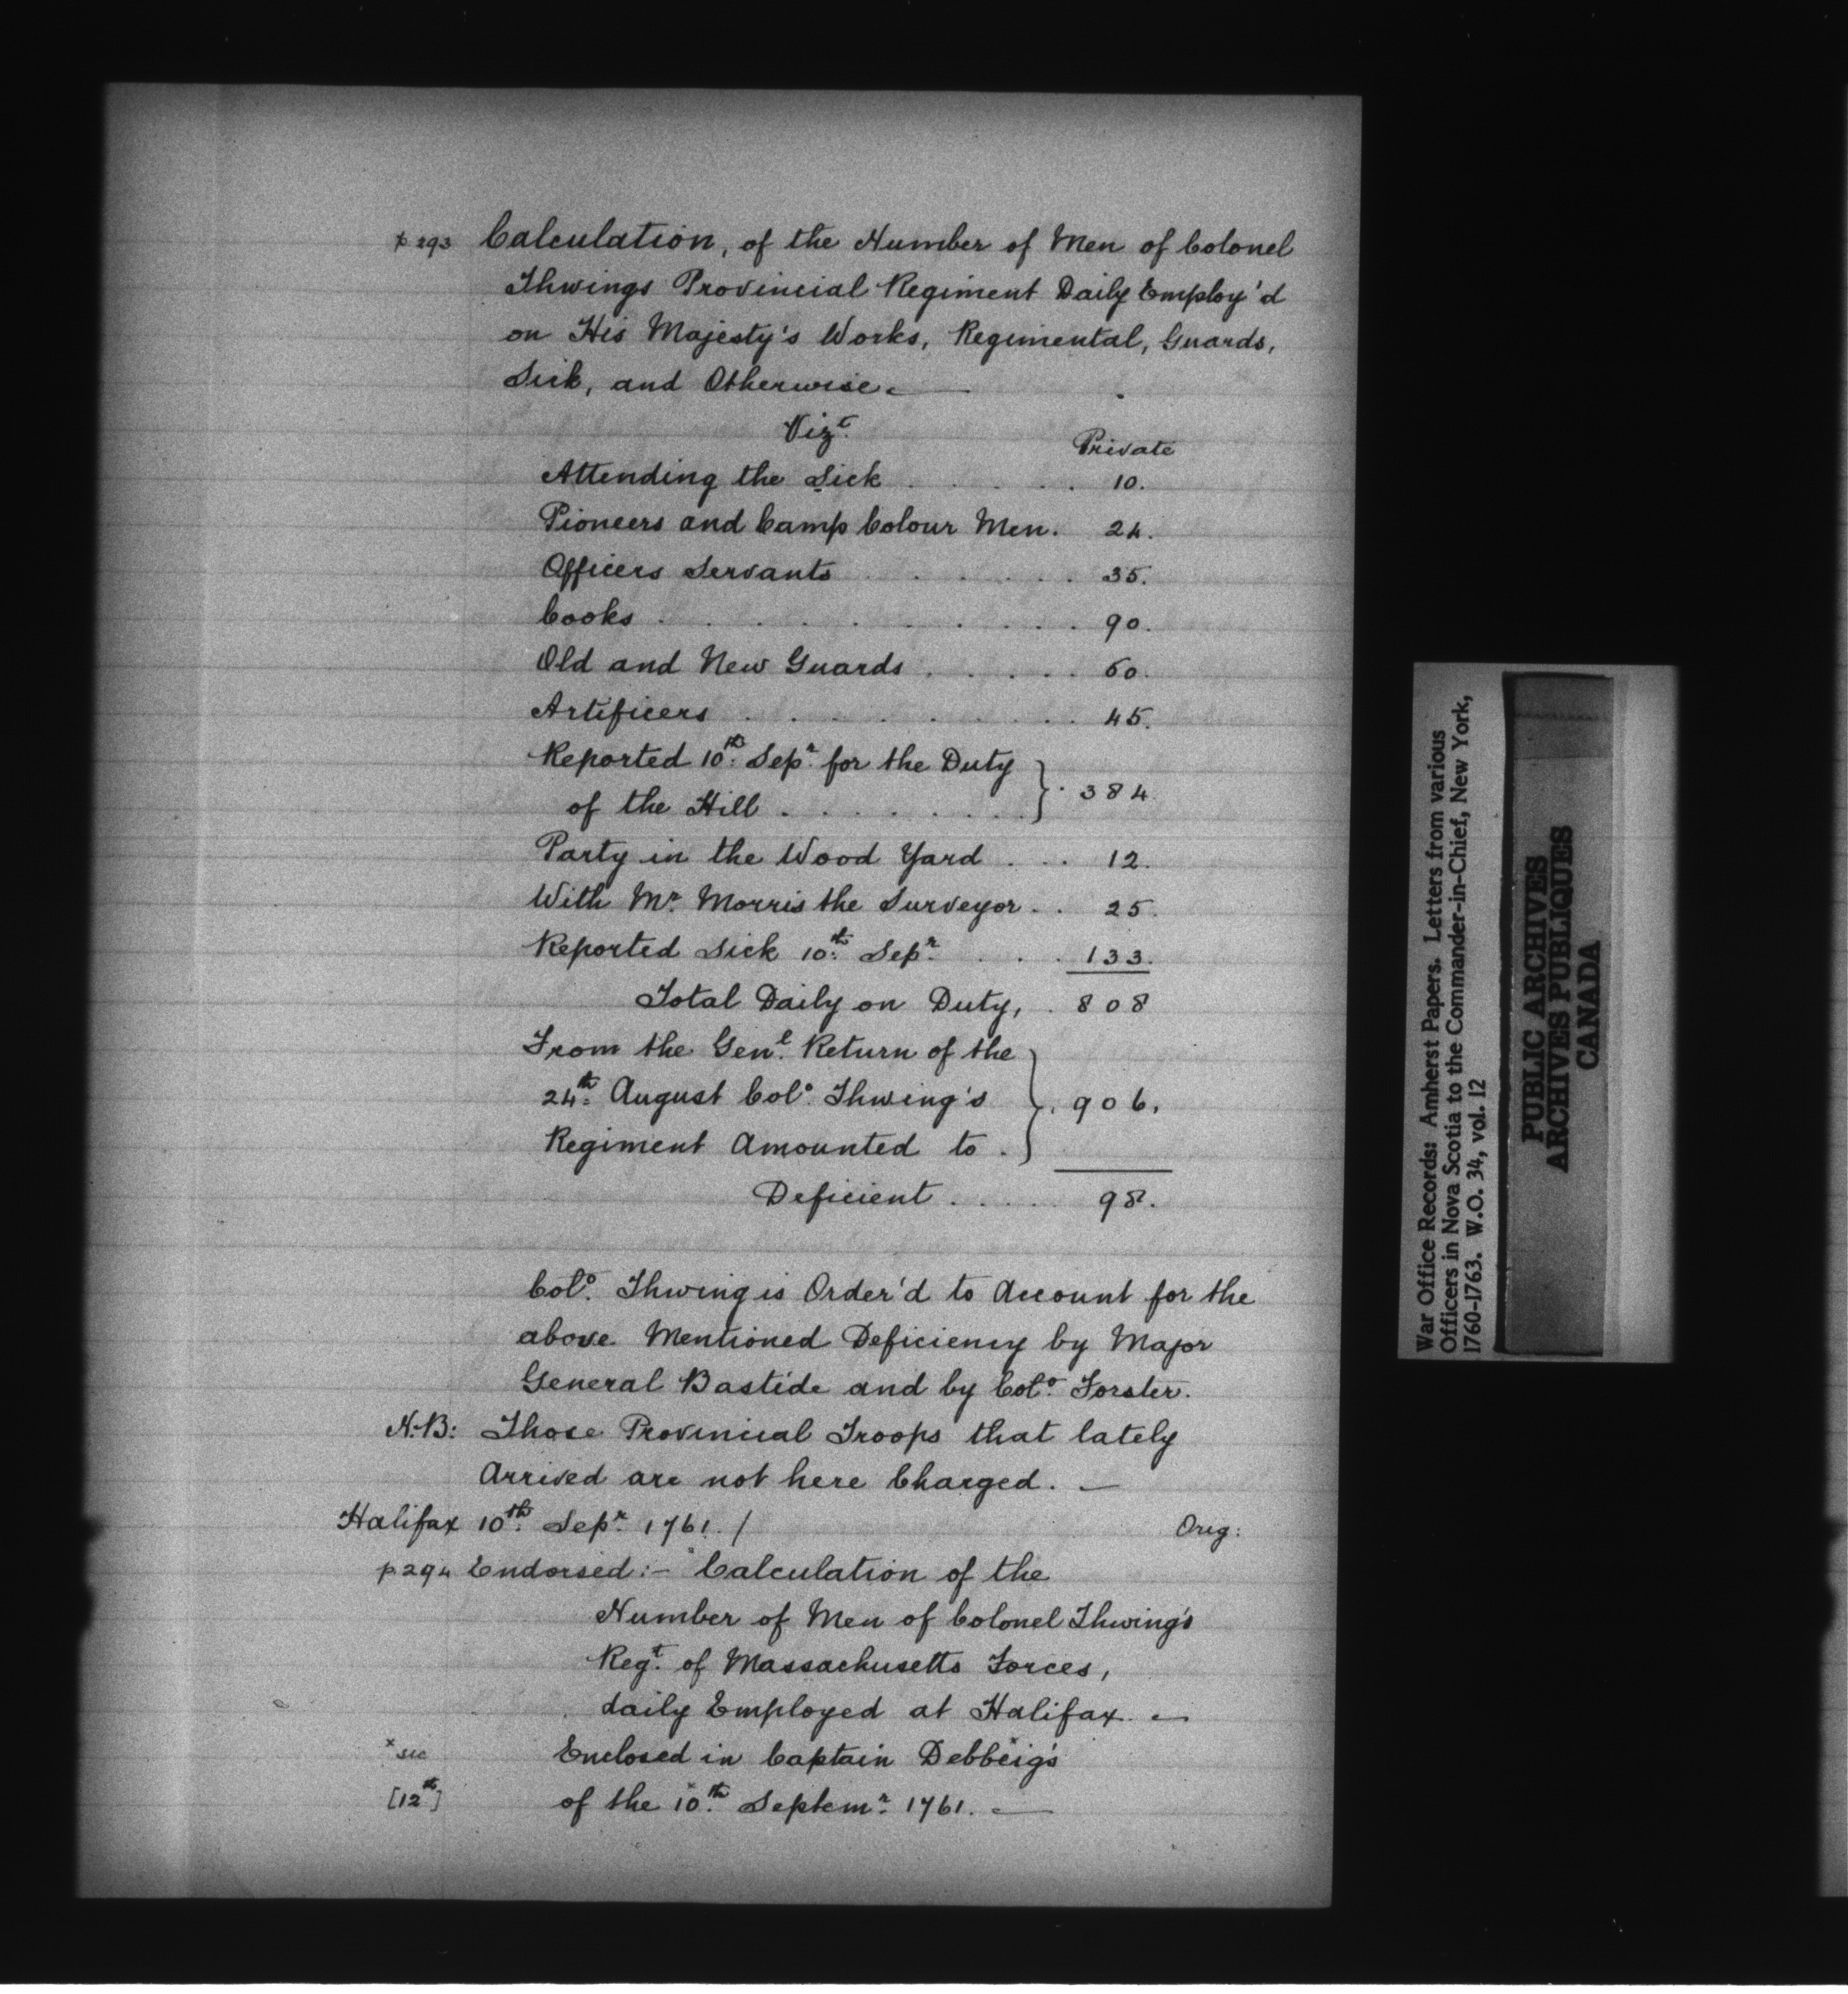 p 293 Calculation, of the Number of Men of Colonel
Thwings Provincial Regiment Daily Employ'd
on His Majesty's Works, Regimental, Guards,
Sick, and Otherwise. —
Vizt.
Private
Attending the Sick . . . . . 10.
Pioneers and Camp Colour Men. 24.
Officers Servants . . . . . 35.
Cooks . . . . . . . . . 90.
Old and New Guards . . . . . 50.
Artificers . . . . . . . . 45.
Reported 10th. Sepr. for the Duty
of the Hill . . . . . . . } . 384.
Party in the Wood Yard . . . 12.
With Mr. Morris the Surveyor . . 25.
Reported Sick 10th. Sepr. . . . 133.
Total Daily on Duty, . 808
From the Genl. Return of the
24th. August Colo. Thwing's } . 906.
Regiment Amounted to .
Deficient . . . . . 98.
Colo. Thwing is Order'd to Account for the
above Mentioned Deficiency by Major
General Bastide and by Colo. Forster.
N.B: Those Provincial Troops that lately
Arrived are not here Charged. —
Halifax 10th. Sepr. 1761. /
Orig:
p 294 Endorsed:- "Calculation of the
Number of Men of Colonel Thwing's
Regt. of Massachusetts Forces,
daily Employed at Halifax. —
x sic Enclosed in Captain Debbeig's
[12th] of the x10th. Septemr. 1761. —
War Office Records: Amherst Papers. Letters from various
Officers in Nova Scotia to the Commander-in-Chief, New York,
1760-1763. W.O. 34, vol. 12
PUBLIC ARCHIVES
ARCHIVES PUBLIQUES
CANADA